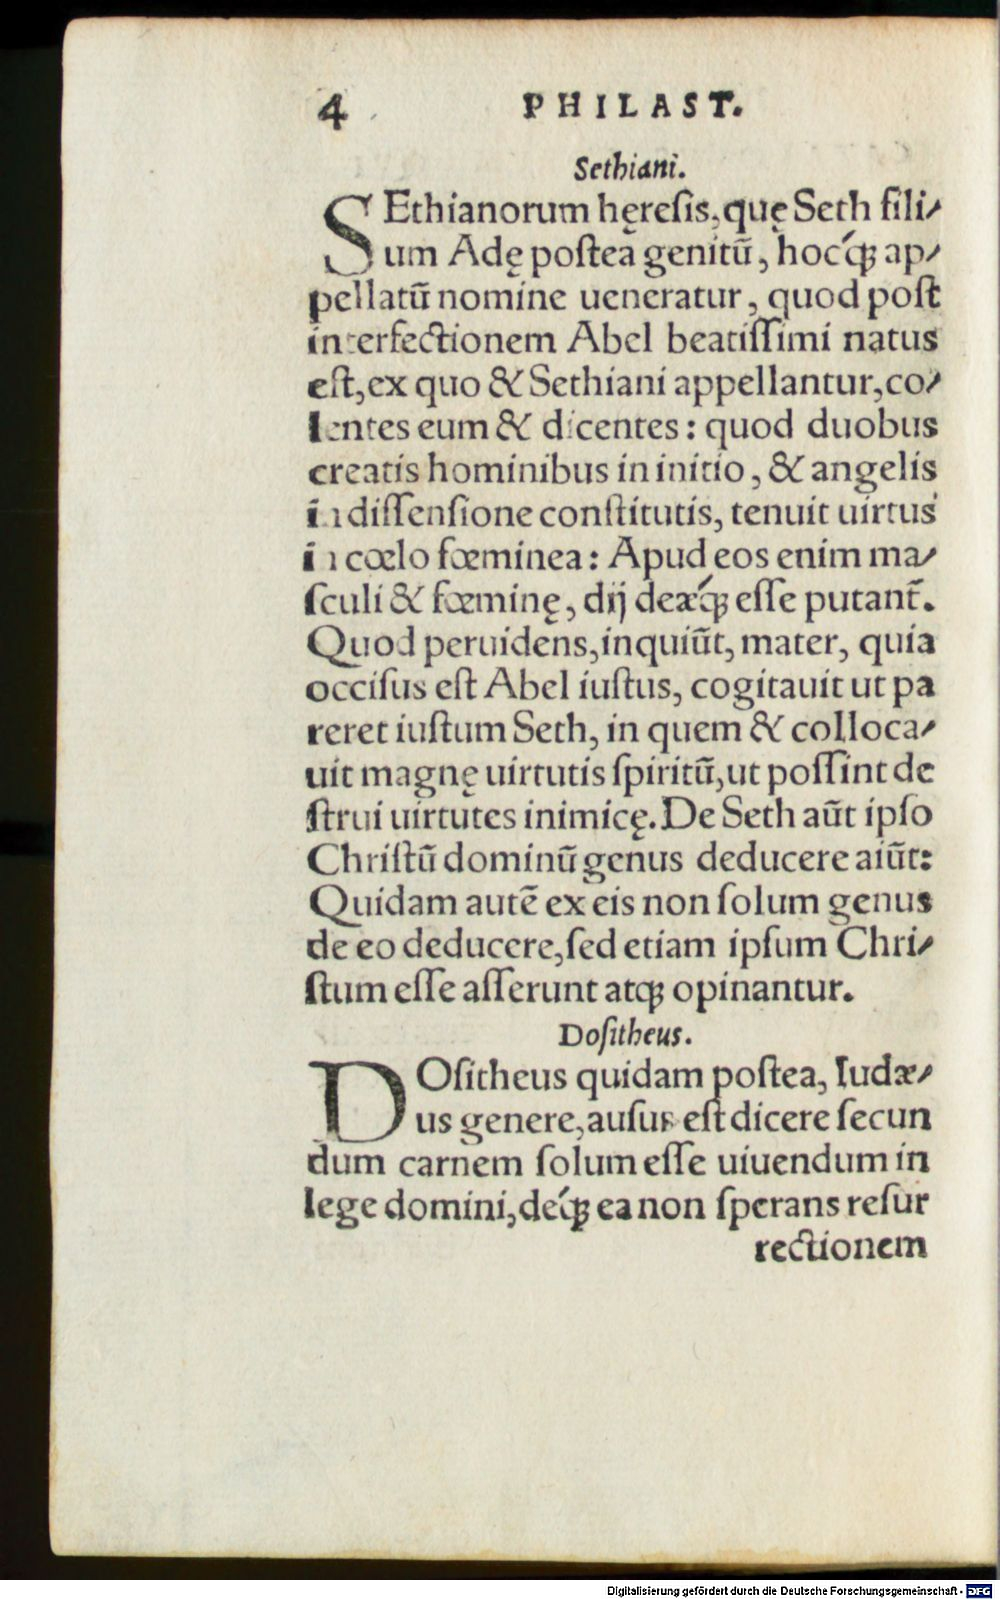 4 PHILAST.
Sethiani.
SEthianorum hęresis, quę Seth fili⸗
um Adę postea genitū, hocq́ꝫ ap⸗
pellatū nomine ueneratur, quod post
interfectionem Abel beatissimi natus
est, ex quo & Sethiani appellantur, co⸗
lentes eum & dicentes: quod duobus
creatis hominibus in initio, & angelis
in dissensione constitutis, tenuit uirtus
in cœlo fœminea: Apud eos enim ma⸗
sculi & fœminę, dij deæq́ꝫ esse putant̄.
Quod peruidens, inquiūt, mater, quia
occisus est Abel iustus, cogitauit ut pa
reret iustum Seth, in quem & colloca⸗
uit magnę uirtutis spiritū, ut possint de
strui uirtutes inimicę. De Seth aūt ipso
Christū dominū genus deducere aiūt:
Quidam autē ex eis non solum genus
de eo deducere, sed etiam ipsum Chri⸗
stum esse asserunt atqꝫ opinantur.
Dositheus.
DOsitheus quidam postea, Iudæ⸗
us genere, ausus est dicere secun
dum carnem solum esse uiuendum in
lege domini, deq́ꝫ ea non sperans resur
rectionem
Digitalisierung gefördert durch die Deutsche Forschungsgemeinschaft - DFG